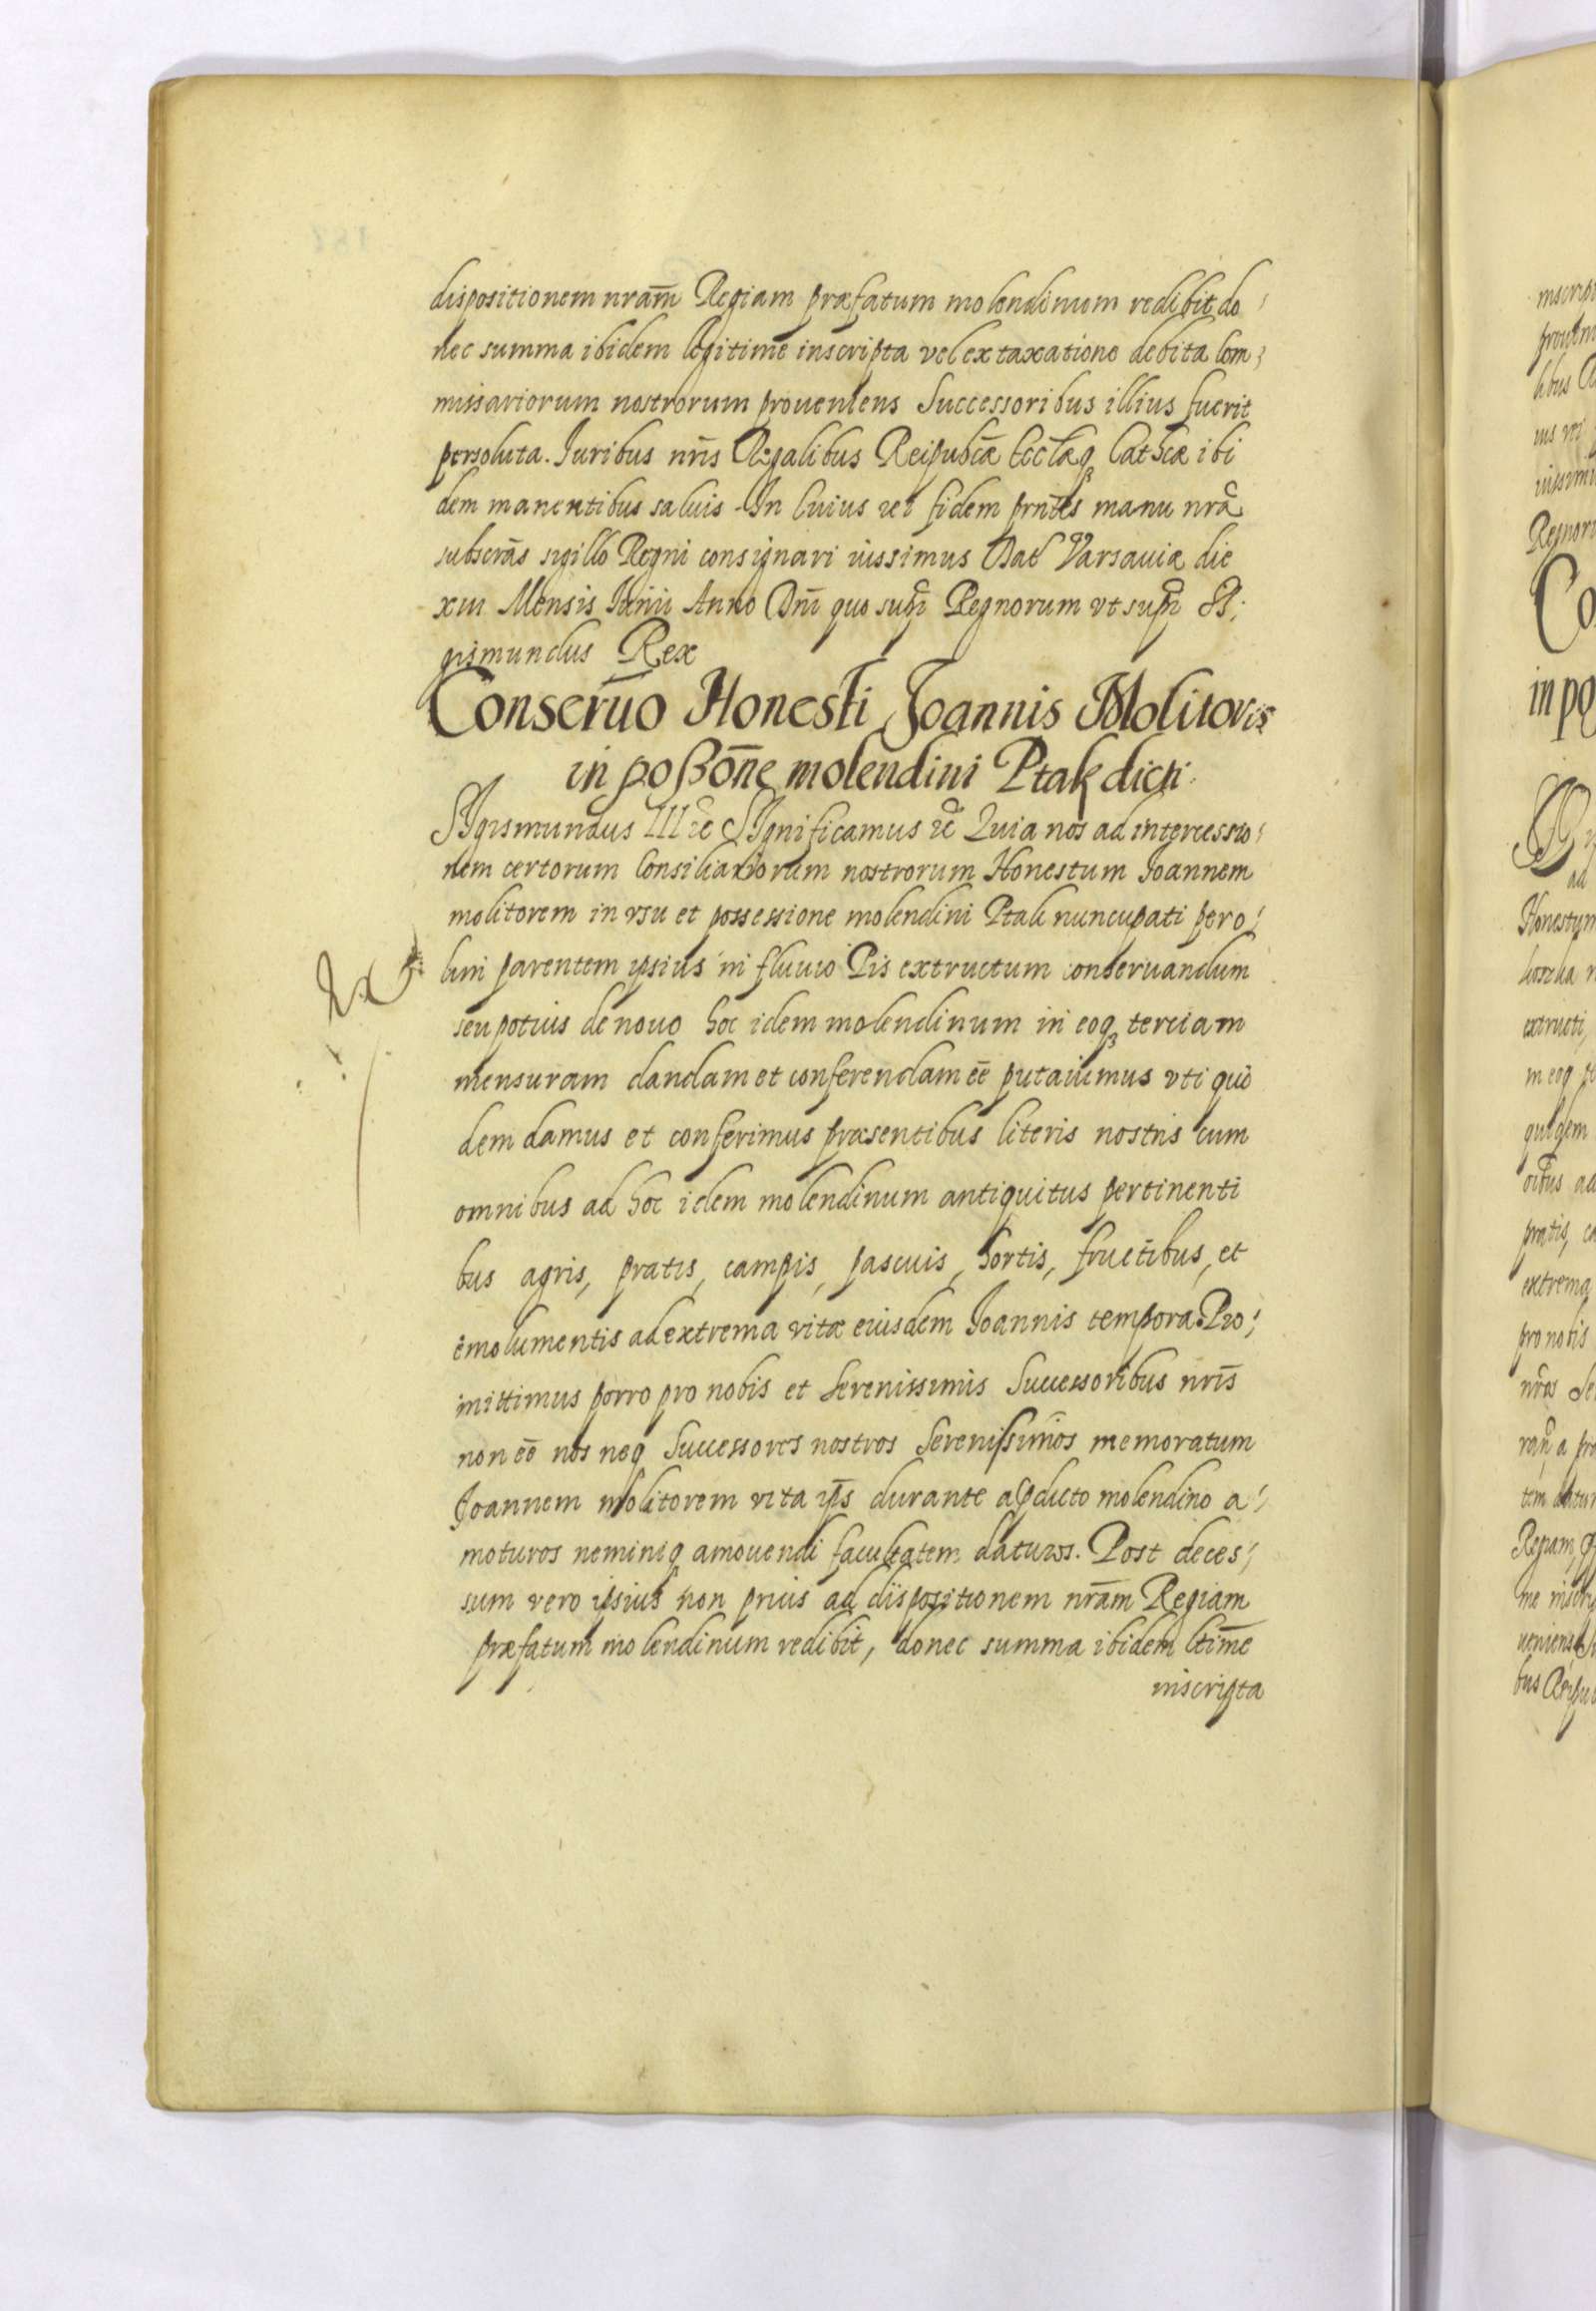 dispositionem nrām Regiam præfatum molendinum redibit do
nec summa ibidem legitime inscripta vel ex taxatione debita Com
missariorum nostrorum proueniens Successoribus illius fuerit
persoluta. Iuribus nrīs Regalibus Reipubcæ Ecclæq Cathcæ ibi
dem manentibus saluis. In Cuius rei fidem prntes manu nrā
subscrās sigillo Regni consignari iussimus Dat Varsauiæ die
xiii Mensis Iunii Anno Dnī quo supr Regnorum vt supr Si
gismundus Rex
Conseruo Honesti Joannis Molitoris
in poßōne molendini Ptak dicti.
SIgismundus III ec SIgnificamus ec Quia nos ad intercessio
nem certorum Consiliariorum nostrorum Honestum Joannem
molitorem in vsu et possessione molendini Ptak nuncupati per o
lim parentem ipsius in fluuio Pis extructum conseruandum
seu potius de nouo hoc idem molendinum in eoq terciam
mensuram dandam et conferendam eē putauimus vti qui
dem damus et conferimus præsentibus literis nostris cum
omnibus ad hoc idem molendinum antiquitus pertinenti
bus agris, pratis, campis, pascuis, hortis, fructibus, et
emolumentis ad extrema vitæ eiusdem Joannis tempora. Pro
mittimus porro pro nobis et Serenissimis Successoribus nrīs
non eē nos neq Successores nostros Serenissimos memoratum
Joannem molitorem vita ips durante a pdicto molendino a
moturos neminiq amouendi facultatem daturos. Post deces
sum vero ipsius non prius ad dispositionem nrām Regiam
præfatum molendinum redibit, donec summa ibidem ltime
inscripta